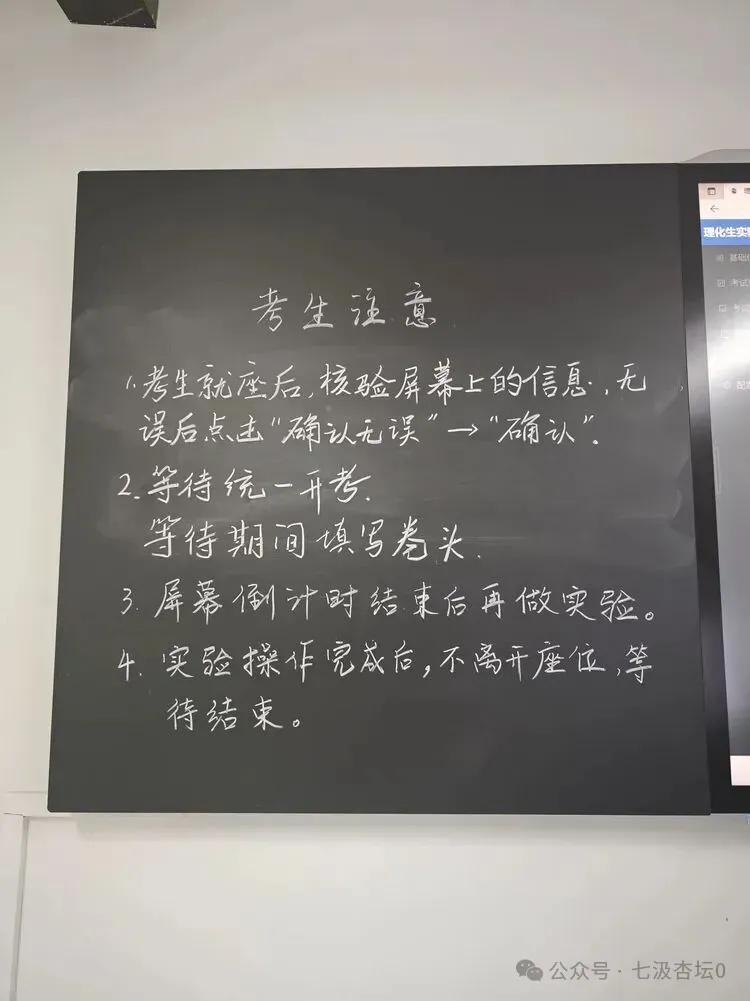 考生注意
1.考生就座后,核验屏幕上的信息,无
误后点击“确认无误”→“确认”.
2.等待统一开考.
等待期间填写卷头.
3.屏幕倒计时结束后再做实验。
4.实验操作完成后,不离开座位,等
待结束。
理化生实
公众号·七汲杏坛0